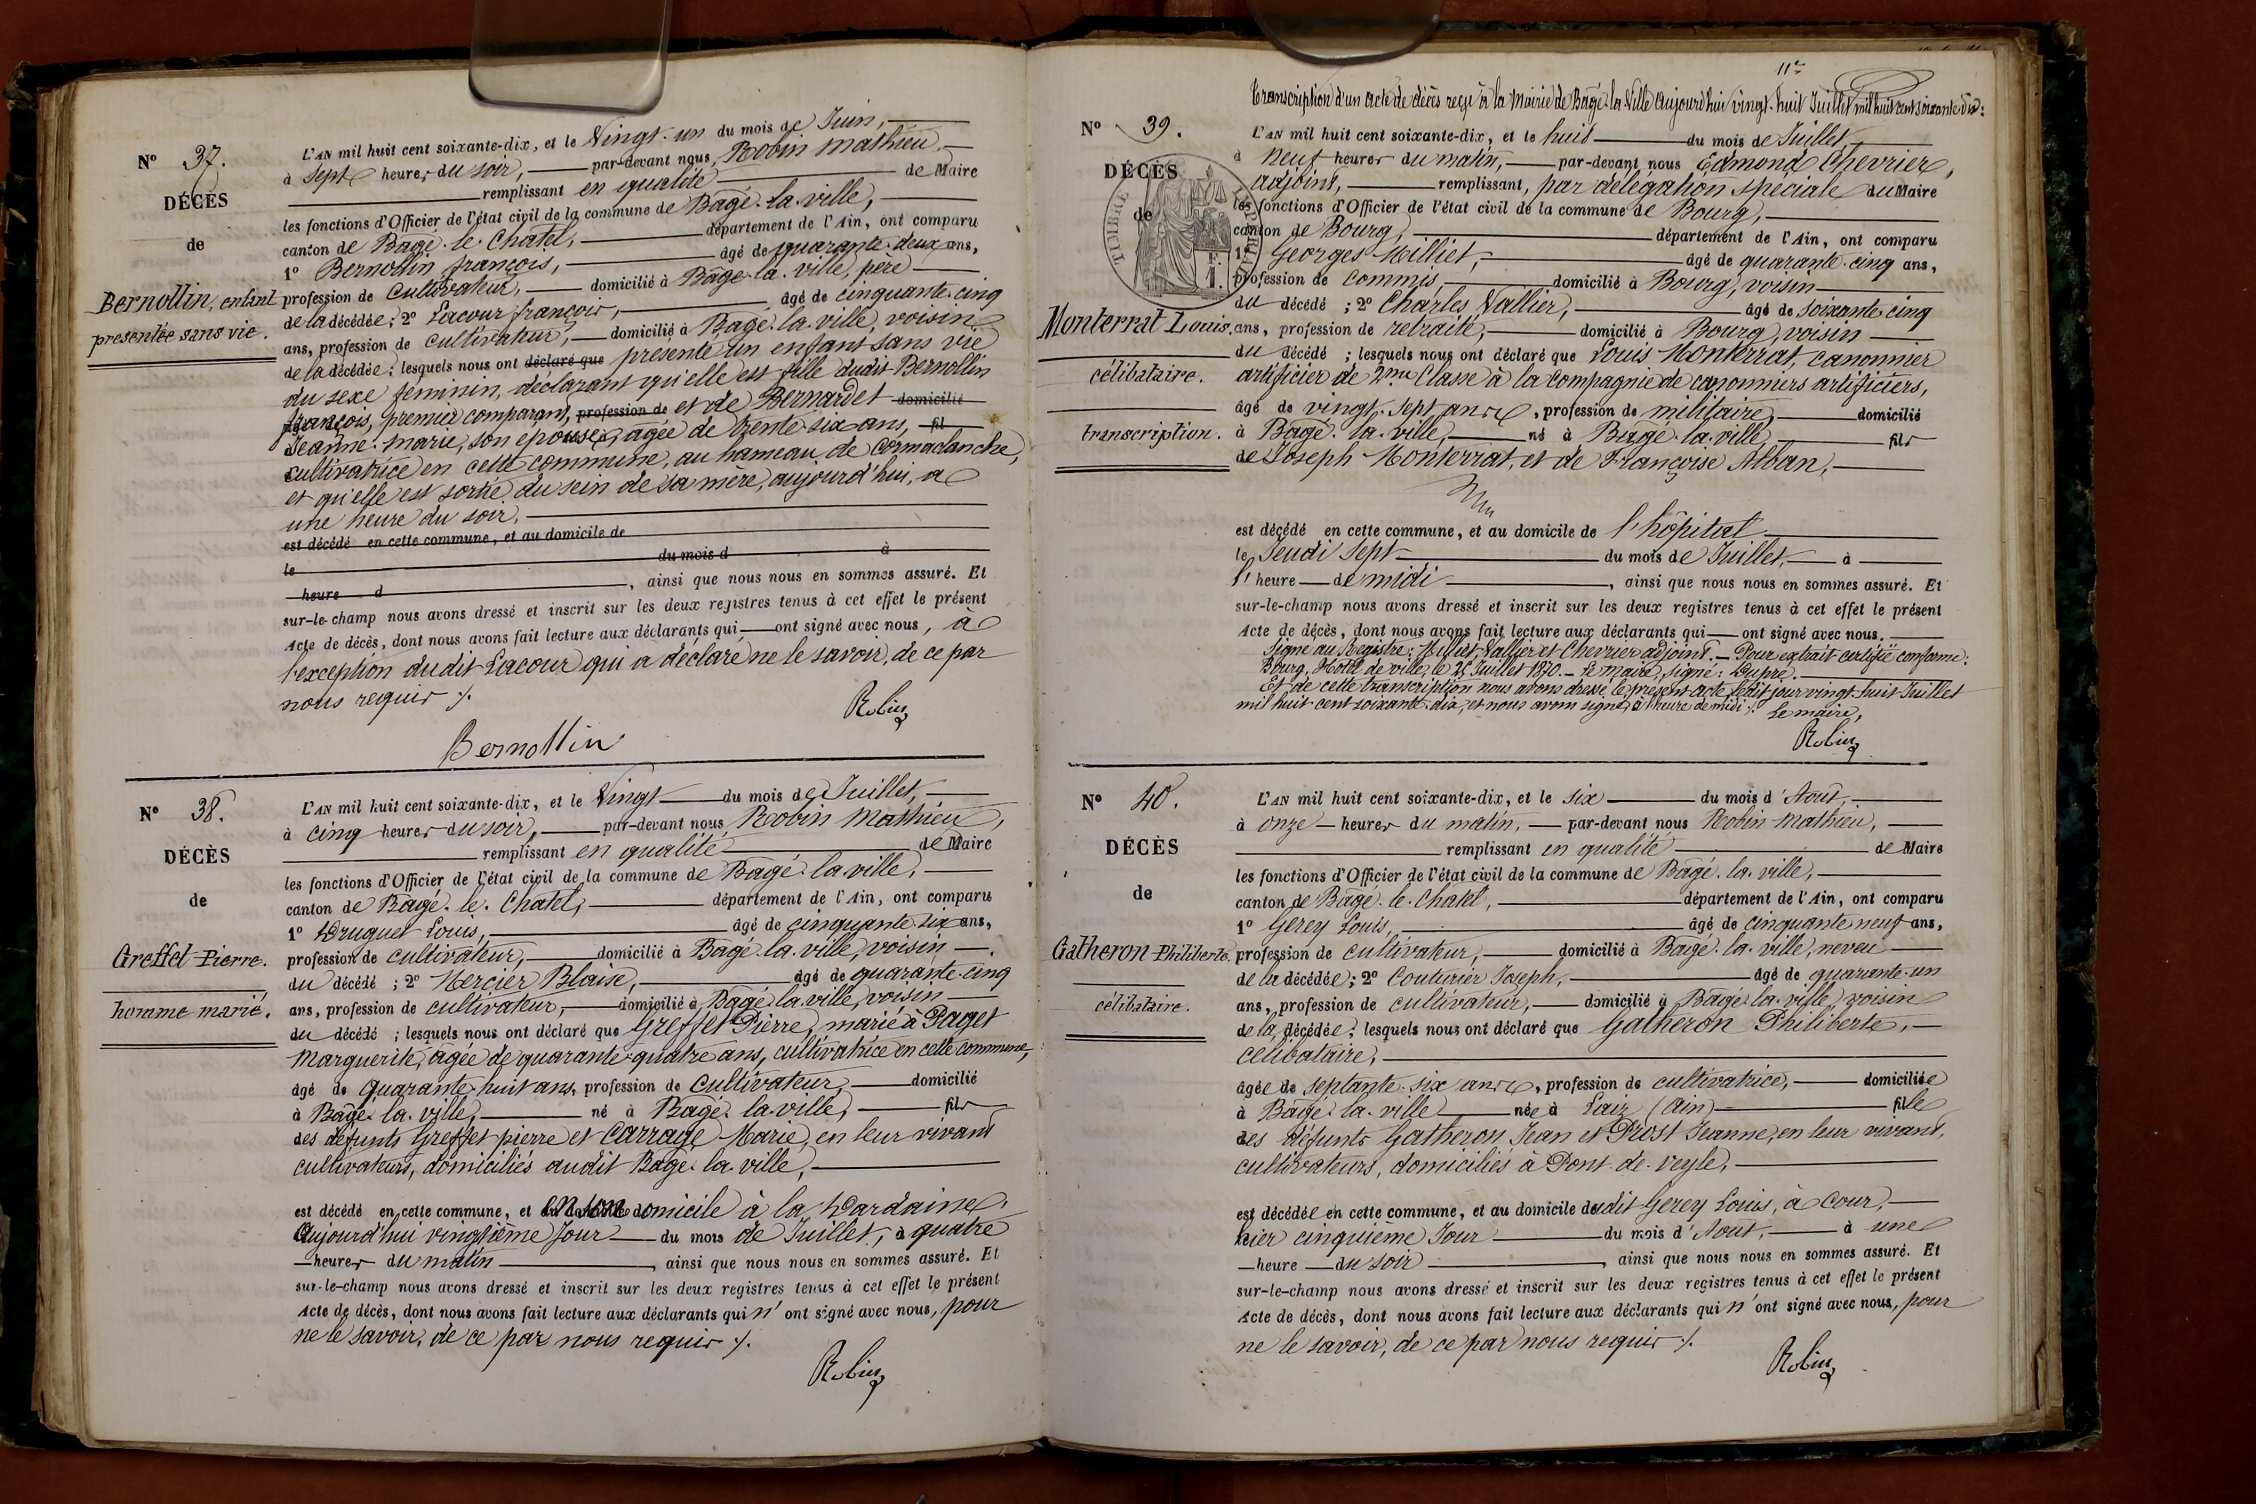 N° 37.
DÉCÈS
de
Bernollin, enfant
présentée sans vie.
L'AN mil huit cent soixante-dix, et le Vingt-un du mois de Juin,
à Sept heures du soir, par-devant nous, Robin Mathieu
remplissant en qualité de Maire
les fonctions d'Officier de l'état civil de la commune de Bâgé-la-ville,
canton de Bâgé-le-Chatel, département de l'Ain, ont comparu
1° Bernollin françois, âgé de quarante-deux ans,
profession de Cultivateur, domicilié à Bâgé-la-ville, père
de la décédée; 2° Lacour françois, âgé de cinquante-cinq
ans, profession de cultivateur, domicilié à Bâgé-la-ville, voisin
de la décédée; lesquels nous ont déclaré que présenté un enfant sans vie
du sexe féminin, déclarant qu'elle est fille dudit Bernollin
françois, premier comparant, profession de et de Bernardet domicilié
Jeanne-Marie, son épouse, âgée de trente-six ans, fil
cultivatrice en cette commune, au hameau de Cormaclanche,
et qu'elle est sortie du sein de sa mère, aujourd'hui, à
une heure du soir.
est décédé en cette commune, et au domicile de
le du mois d à
heure d , ainsi que nous nous en sommes assuré. Et
sur-le-champ nous avons dressé et inscrit sur les deux registres tenus à cet effet le présent
Acte de décès, dont nous avons fait lecture aux déclarants qui ont signé avec nous, à
l'exception dudit Lacour qui a déclaré ne le savoir, de ce par
nous requis ./.
Robin
Bernollin
N° 38.
DÉCÈS
de
Greffet Pierre.
homme marié.
L'AN mil huit cent soixante-dix, et le Vingt du mois de Juillet,
à cinq heures du soir, par-devant nous Robin Mathieu,
remplissant en qualité de Maire
les fonctions d'Officier de l'état civil de la commune de Bâgé-la-ville,
canton de Bâgé-le-Chatel, département de l'Ain, ont comparu
1° Druguet Louis, âgé de cinquante-six ans,
profession de cultivateur, domicilié à Bâgé-la-ville, voisin
du décédé ; 2° Mercier Blaise, âgé de quarante-cinq
ans, profession de cultivateur, domicilié à Bâgé-la-ville, voisin
du décédé ; lesquels nous ont déclaré que Greffet Pierre, marié à Paget
Marguerite, âgée de quarante-quatre ans, cultivatrice en cette commune,
âgé de quarante-huit ans, profession de cultivateur, domicilié
à Bâgé-la-ville, né à Bâgé-la-ville, fils
des défunts Greffet pierre et Carrage Marie, en leur vivant
cultivateurs, domiciliés audit Bâgé-la-ville,
est décédé en cette commune, et en son domicile à la Dardaine,
aujourd'hui vingtième Jour du mois de Juillet, à quatre
heures du matin , ainsi que nous nous en sommes assuré. Et
sur-le-champ nous avons dressé et inscrit sur les deux registres tenus à cet effet le présent
Acte de décès, dont nous avons fait lecture aux déclarants qui n'ont signé avec nous, pour
ne le savoir, de ce par nous requis ./.
Robin
11e
Transcription d'un acte de décès reçu à la Mairie de Bâgé-la-Ville aujourd'hui vingt-huit Juillet mil huit cent soixante-dix:
N° 39.
DÉCÈS
de
TIMBRE IMPERIAL
Monterrat Louis,
célibataire.
transcription.
L'AN mil huit cent soixante-dix, et le huit du mois de Juillet,
à neuf heures du matin, par-devant nous Edmond Chevrier,
adjoint, remplissant, par délégation spéciale du Maire
les fonctions d'Officier de l'état civil de la commune de Bourg,
canton de Bourg, département de l'Ain, ont comparu
1° Georges Milliet, âgé de quarante-cinq ans,
profession de commis, domicilié à Bourg, voisin
du décédé ; 2° Charles Vallier, âgé de soixante cinq
ans, profession de retraité, domicilié à Bourg, voisin
du décédé ; lesquels nous ont déclaré que Louis Monterrat, canonnier
artificier de 2me Classe à la compagnie de canonniers artificiers,
âgé de vingt-sept ans , profession de militaire, domicilié
à Bâgé-la-ville, né à Bâgé-la-ville, fils
de Joseph Monterrat, et de Françoise Alban,
est décédé en cette commune, et au domicile de l'hôpital
le Jeudi sept du mois de Juillet, à
l'heure de midi , ainsi que nous nous en sommes assuré. Et
sur-le-champ nous avons dressé et inscrit sur les deux registres tenus à cet effet le présent
Acte de décès, dont nous avons fait lecture aux déclarants qui ont signé avec nous.
Signé au Registre: Milliet Vallier et Chevrier adjoint. — Pour extrait certifié conforme:
Bourg, Hôtel de ville, le 25 Juillet 1870. — Le maire, signé: Dupré.
Et de cette transcription nous avons dressé le présent acte, ledit jour vingt-huit Juillet
mil huit cent soixante-dix, et nous avons signé, à l'heure de midi ./. Le maire,
Robin
N° 40.
DÉCÈS
de
Gatheron Philiberte.
célibataire.
L'AN mil huit cent soixante-dix, et le six du mois d'Aout,
à onze heures du matin, par-devant nous Robin Mathieu,
remplissant en qualité de Maire
les fonctions d'Officier de l'état civil de la commune de Bâgé-la-ville,
canton de Bâgé-le-Chatel, département de l'Ain, ont comparu
1° Gerey Louis, âgé de cinquante neuf ans,
profession de cultivateur, domicilié à Bâgé-la-ville, neveu
de la décédée; 2° Couturier Joseph, âgé de quarante-un
ans, profession de cultivateur, domicilié à Bâgé-la-ville, voisin
de la décédée; lesquels nous ont déclaré que Gatheron Philiberte,
célibataire,
âgée de septante-six ans , profession de cultivatrice, domiciliée
à Bâgé-la-ville née à Laiz (Ain) fille
des défunts Gatheron Jean et Prost Jeanne, en leur vivant,
cultivateurs, domiciliés à Pont-de-veyle,
est décédée en cette commune, et au domicile dudit Gerey Louis, à Cour,
hier cinquième Jour du mois d'Aout, à une
heure du soir , ainsi que nous nous en sommes assuré. Et
sur-le-champ nous avons dressé et inscrit sur les deux registres tenus à cet effet le présent
Acte de décès, dont nous avons fait lecture aux déclarants qui n'ont signé avec nous, pour
ne le savoir, de ce par nous requis ./.
Robin